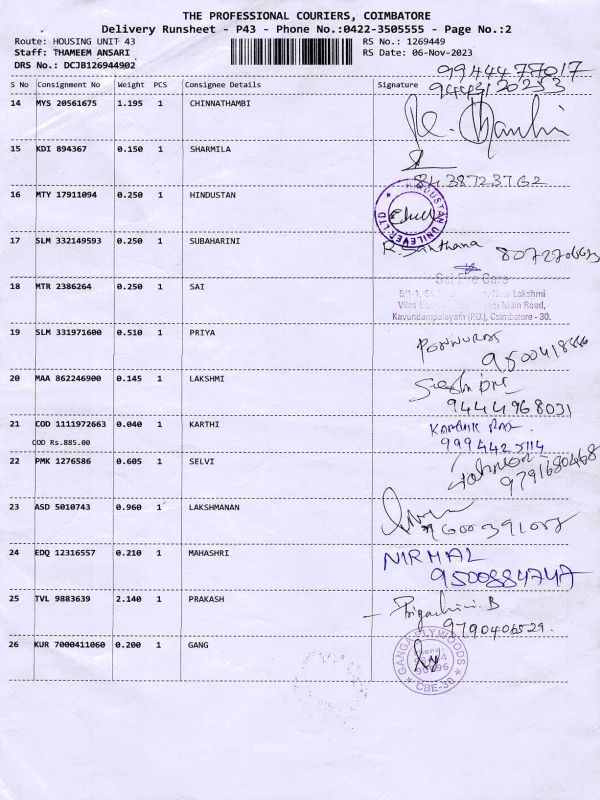 THE PROFESSIONAL COURIERS, COIMBATORE
Delivery Runsheet - P43 - Phone No.:0422-3505555 - Page No.:2
Route: HOUSING UNIT 43 RS No.: 1269449
Staff: THAMEEM ANSARI RS Date: 06-Nov-2023
DRS No.: DCJB126944902
9944477017
S No Consignment No Weight PCS Consignee Details Signature
14 MYS 20561675 1.195 1 CHINNATHAMBI
15 KDI 894367 0.150 1 SHARMILA
8438723762
16 MTY 17911094 0.250 1 HINDUSTAN
HINDUSTAN UNILEVER LTD
17 SLM 332149593 0.250 1 SUBAHARINI
R. Santhana
18 MTR 2386264 0.250 1 SAI
Sai Eye Care
5/1-1, Lakshmi
Main Road,
Kavundampalayam (P.O.), Coimbatore - 30.
19 SLM 331971600 0.510 1 PRIYA
20 MAA 862246900 0.145 1 LAKSHMI
9444968031
21 COD 1111972663 0.040 1 KARTHI
COD Rs.885.00
22 PMK 1276586 0.605 1 SELVI
9791680468
23 ASD 5010743 0.960 1 LAKSHMANAN
24 EDQ 12316557 0.210 1 MAHASHRI
NIRMAL
9500884747
25 TVL 9883639 2.140 1 PRAKASH
9790406529.
26 KUR 7000411060 0.200 1 GANG
GANGA PLYWOODS
CBE-30